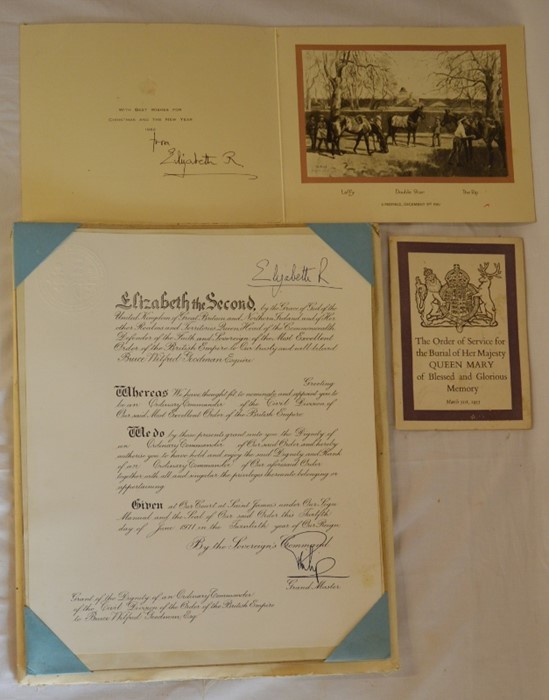 WITH BEST WISHES FOR
CHRISTMAS AND THE NEW YEAR
From
Elizabeth R
Laffy Double Star
LINGFIELD, DECEMBER
Elizabeth R
Elizabeth the Second, by the Grace of God of the
United Kingdom of Great Britain and Northern Ireland and of Her
other Realms and Territories Queen, Head of the Commonwealth,
Defender of the Faith and Sovereign of the Most Excellent
Order of the British Empire to Our trusty and well beloved
Bruce Wilfred Goodman Esquire
Greeting
Whereas We have thought fit to nominate and appoint you to
be an Ordinary Commander of the Civil Division of
Our said Most Excellent Order of the British Empire
We do by these presents grant unto you the Dignity of
an Ordinary Commander of Our said Order and hereby
authorise you to have hold and enjoy the said Dignity and Rank
of an Ordinary Commander of Our aforesaid Order
together with all and singular the privileges thereunto belonging or
appertaining.
Given at Our Court at Saint James's under Our Sign
Manual and the Seal of Our said Order this Twelfth
day of June 1971 in the Twentieth year of Our Reign
By the Sovereign's Command.
Philip
Grand Master
Grant of the Dignity of an Ordinary Commander
of the Civil Division of the Order of the British Empire
to Bruce Wilfred Goodman Esq
The Order of Service for
the Burial of Her Majesty
QUEEN MARY
of Blessed and Glorious
Memory
March 31st, 1953